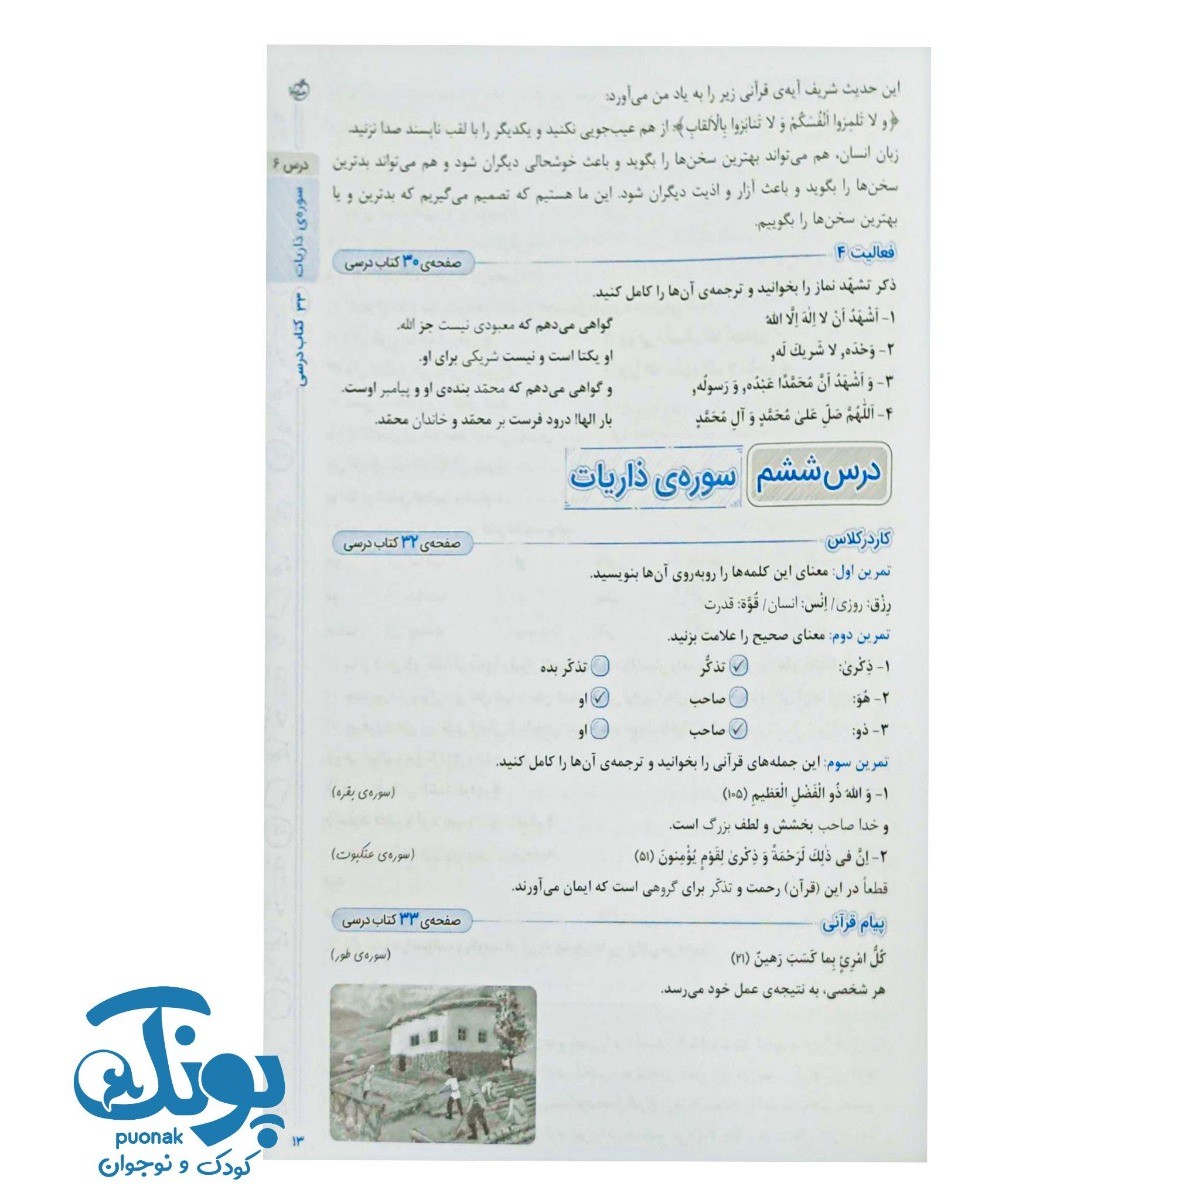 این حدیث شریف آیه‌ی قرآنی زیر را به یاد من می‌آورد:
﴿و لا تَلمِزوا اَنْفُسَکُمْ وَ لا تَنابَزوا بِالْاَلقابِ﴾: از هم عیب‌جویی نکنید و یکدیگر را با لقب ناپسند صدا نزنید.
زبان انسان، هم می‌تواند بهترین سخن‌ها را بگوید و باعث خوشحالی دیگران شود و هم می‌تواند بدترین
سخن‌ها را بگوید و باعث آزار و اذیت دیگران شود. این ما هستیم که تصمیم می‌گیریم که بدترین و یا
بهترین سخن‌ها را بگوییم.
فعالیت ۴
صفحه‌ی ۳۰ کتاب درسی
ذکر تشهّد نماز را بخوانید و ترجمه‌ی آن‌ها را کامل کنید.
۱- اَشْهَدُ اَنْ لا اِلٰهَ اِلَّا اللهُ گواهی می‌دهم که معبودی نیست جز الله.
۲- وَحْدَه, لا شَریكَ لَه, او یکتا است و نیست شریکی برای او.
۳- وَ اَشْهَدُ اَنَّ مُحَمَّدًا عَبْدُه, وَ رَسولُه, و گواهی می‌دهم که محمّد بنده‌ی او و پیامبر اوست.
۴- اَللّٰهُمَّ صَلِّ عَلیٰ مُحَمَّدٍ وَ آلِ مُحَمَّدٍ بار الها! درود فرست بر محمّد و خاندان محمّد.
درس ششم سوره‌ی ذاریات
کاردرکلاس
صفحه‌ی ۳۲ کتاب درسی
تمرین اول: معنای این کلمه‌ها را روبه‌روی آن‌ها بنویسید.
رِزْق: روزی/ اِنْس: انسان/ قُوَّة: قدرت
تمرین دوم: معنای صحیح را علامت بزنید.
۱- ذِکْریٰ: ✓ تذکُّر تذکّر بده
۲- هُوَ: صاحب ✓ او
۳- ذو: ✓ صاحب او
تمرین سوم: این جمله‌های قرآنی را بخوانید و ترجمه‌ی آن‌ها را کامل کنید.
۱- وَ اللهُ ذُو الْفَضْلِ الْعَظیمِ (۱۰۵) (سوره‌ی بقره)
و خدا صاحب بخشش و لطف بزرگ است.
۲- اِنَّ فی ذٰلِكَ لَرَحْمَةً وَ ذِکْریٰ لِقَوْمٍ یُؤْمِنونَ (۵۱) (سوره‌ی عنکبوت)
قطعاً در این (قرآن) رحمت و تذکّر برای گروهی است که ایمان می‌آورند.
پیام قرآنی
صفحه‌ی ۳۳ کتاب درسی
کُلُّ امْرِئٍ بِما کَسَبَ رَهینٌ (۲۱) (سوره‌ی طور)
هر شخصی، به نتیجه‌ی عمل خود می‌رسد.
درس ۶
سوره‌ی ذاریات
۳۳ کتاب درسی
۱۳
پونک
puonak
کودک و نوجوان